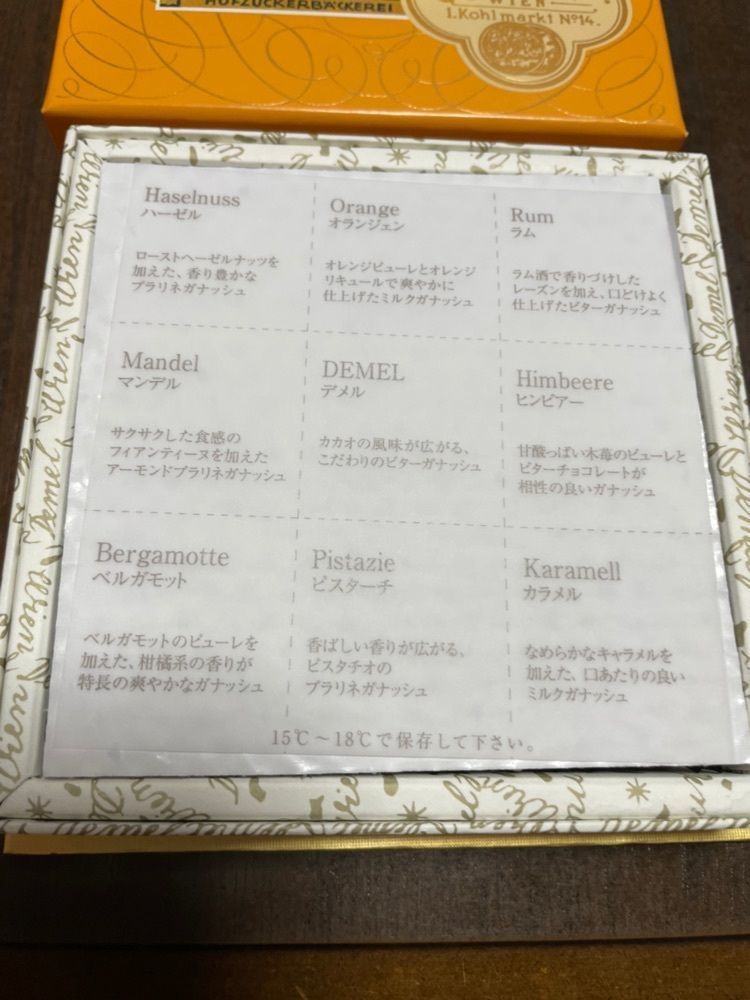 HOFZUCKERBÄCKEREI
WIEN
1.Kohlmarkt Nº14.
Haselnuss
ハーゼル
ローストヘーゼルナッツを
加えた、香り豊かな
プラリネガナッシュ
Orange
オランジェン
オレンジピューレとオレンジ
リキュールで爽やかに
仕上げたミルクガナッシュ
Rum
ラム
ラム酒で香りづけした
レーズンを加え、口どけよく
仕上げたビターガナッシュ
Mandel
マンデル
サクサクした食感の
フィアンティーヌを加えた
アーモンドプラリネガナッシュ
DEMEL
デメル
カカオの風味が広がる、
こだわりのビターガナッシュ
Himbeere
ヒンビアー
甘酸っぱい木苺のピューレと
ビターチョコレートが
相性の良いガナッシュ
Bergamotte
ベルガモット
ベルガモットのピューレを
加えた、柑橘系の香りが
特長の爽やかなガナッシュ
Pistazie
ピスターチ
香ばしい香りが広がる、
ピスタチオの
プラリネガナッシュ
Karamell
カラメル
なめらかなキャラメルを
加えた、口あたりの良い
ミルクガナッシュ
15℃～18℃で保存して下さい。